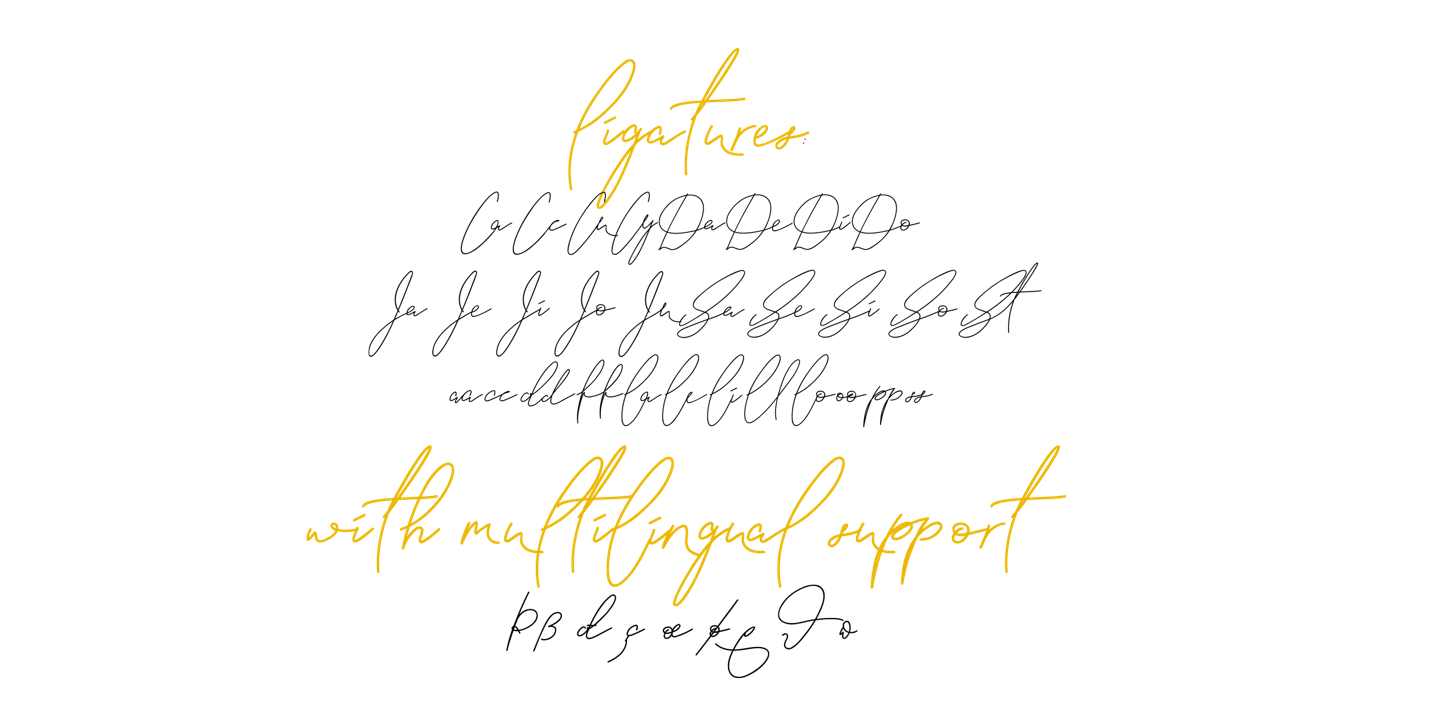 ligatures:
Ca Cc Cu Cy Da De Di Do
Ja Je Ji Jo Ju Sa Se Si So St
aa cc dd ff la le li ll lo oo pp ss
with multilingual support